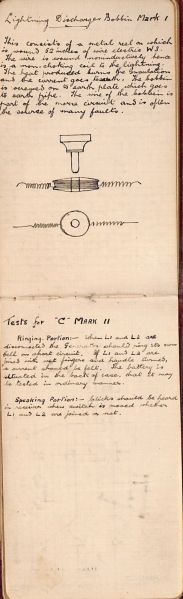 Lightning Discharger Bobbin Mark 1
This consists of a metal reel on which
is wound 52 inches of wire electric W3.
The wire is wound noninductively hence
is a non-choking coil to the lightning.
The heat produced burns the insulation
and the current goes to earth. The bobbin
is screwed on to earth plate which goes
to earth pipe. The wire of the bobbin is
part of the morse circuit and is often
the source of many faults.
Tests for "C" Mark II
Ringing Portion:- When L1 and L2 are
disconnected the Generator should ring its own
bell on short circuit. If L1 and L2 are
joined with wet fingers and handle turned,
a current should be felt. The battery is
situated in the back of case, that it may
be tested in ordinary manner.
Speaking Portion:- Clicks should be heard
in receiver when switch is moved whether
L1 and L2 are joined or not.